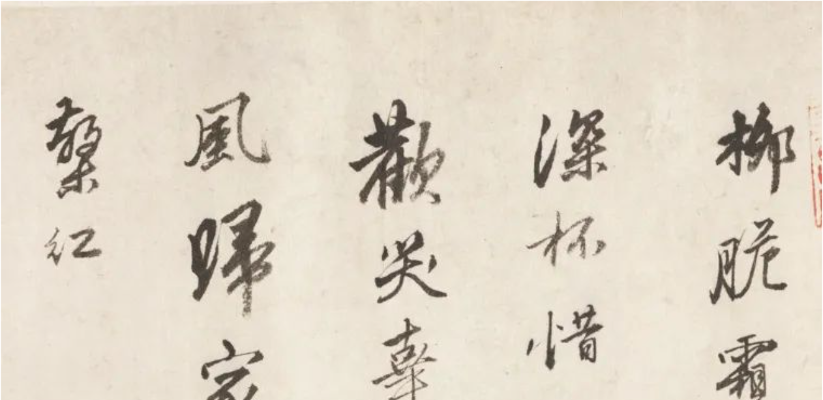 柳脆霜
深杯惜
歡笑
風歸家
檠紅